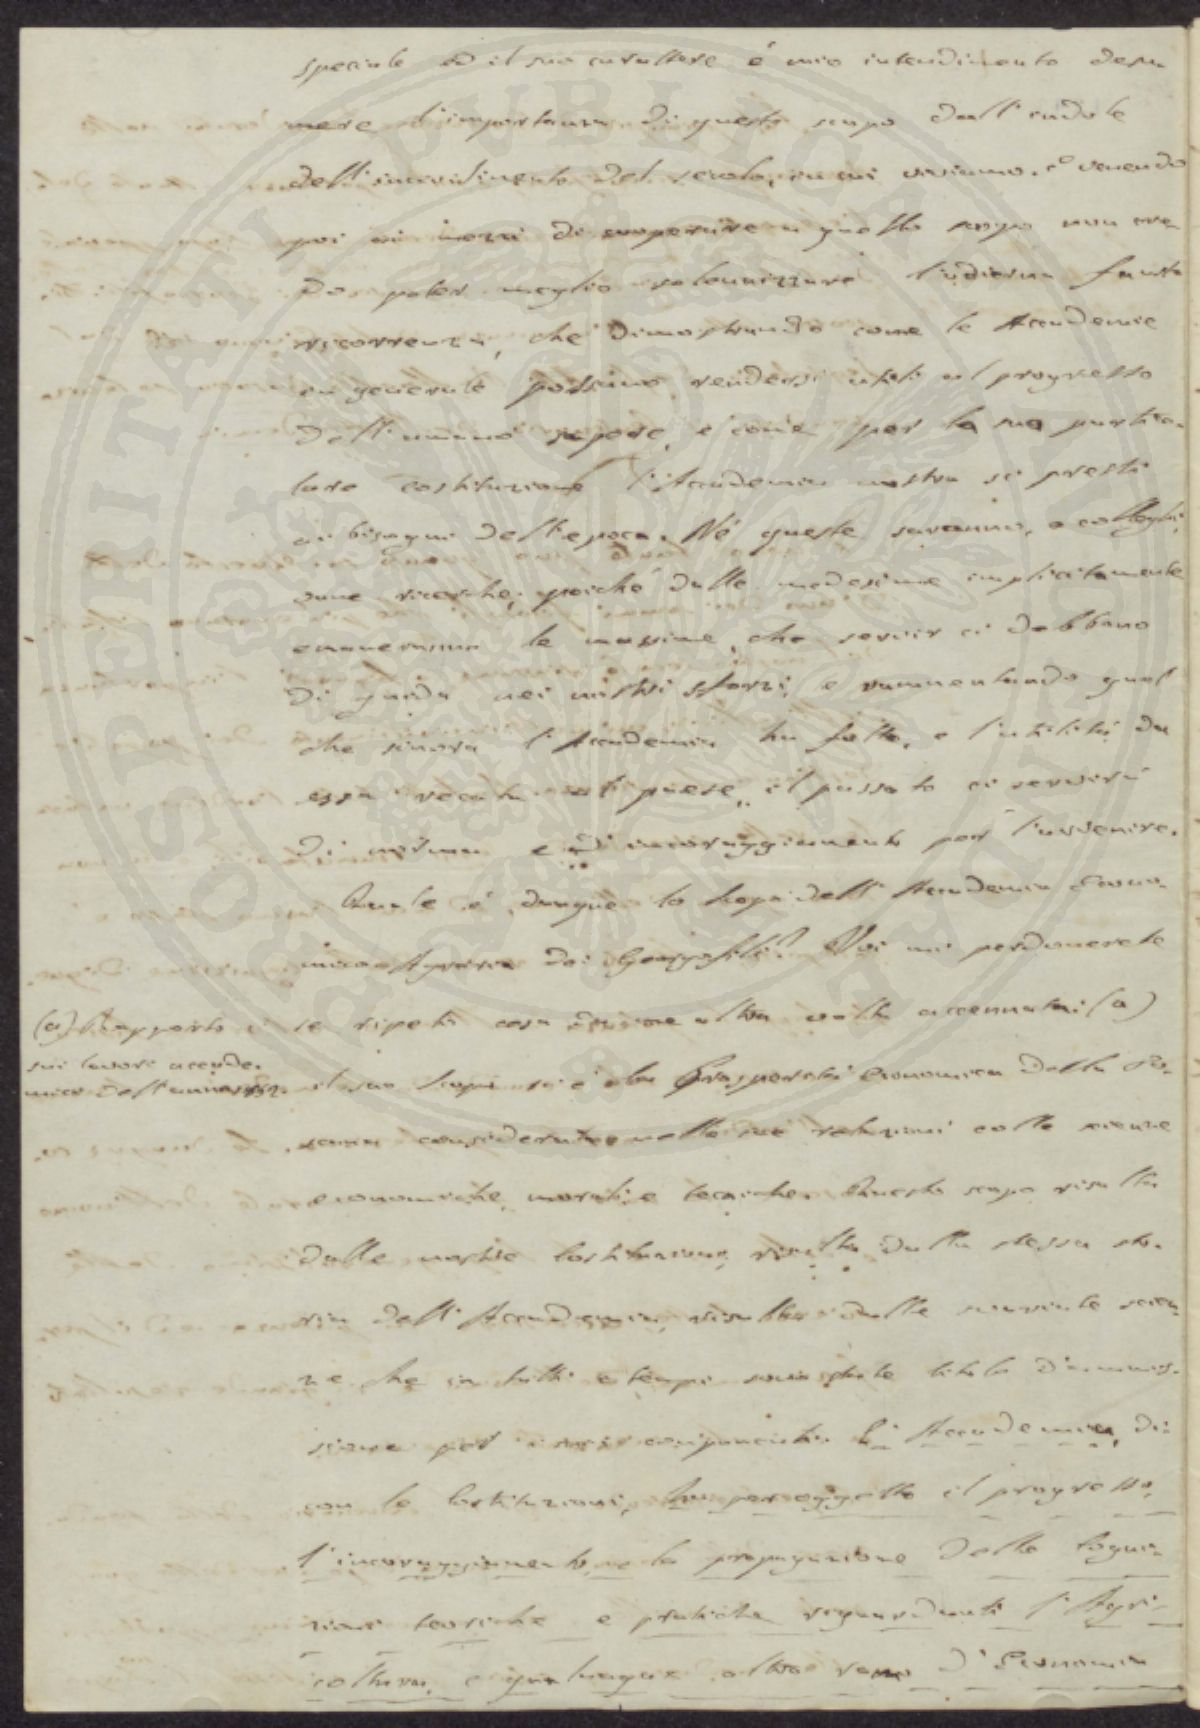 speciale ed il suo carattere è mio intendimento desu
mere l'importanza di questo scopo dall'indole
dell'incivilimento del secolo, in cui viviamo. e venendo
poi ai mezzi di cooperare a questo scopo non cre-
do poter meglio solennizzare l'odierna fausta
ricorrenza, che dimostrando come le Accademie
in generale possano rendersi utili al progresso
dell'umano sapere, e come per la sua partico-
lare costituzione l'Accademia nostra si presti
ai bisogni dell'epoca. Nè queste saranno, o colleghi,
vane ricerche, poichè dalle medesime implicitamente
emaneranno le massime, che servir ci debbano
di guida nei nostri sforzi, e rammentando quel
che sinora l'Accademia ha fatto, e l'utilità da
essa recata al paese, il passato ci servirà
di norma e di incoraggiamento per l'avvenire.
Quale è dunque lo scopo dell'Accademia Econo-
mico Agraria dei Georgofili? Voi mi perdonerete
se ripeto cosa altra volta accennatavi (a)
(a) Rapporto
sui lavori accade-
mici dell'anno
il suo scopo si è la Prosperità Economica della To-
scana considerata nelle sue relazioni colle scienze
economiche, morali e tecniche. Questo scopo risulta
dalle nostre Costituzioni, risulta dalla stessa sto-
ria dell'Accademia, risulta dalle svariate scien-
ze che in tutti i tempi sono state titolo d'ammis-
sione per i suoi componenti. L'Accademia, di-
con le Costituzioni, ha per oggetto il progresso,
l'incoraggiamento, e la propagazione delle Cogni-
zioni teoriche e pratiche riguardanti l'Agri-
coltura, e qualunque altro ramo d'Economia